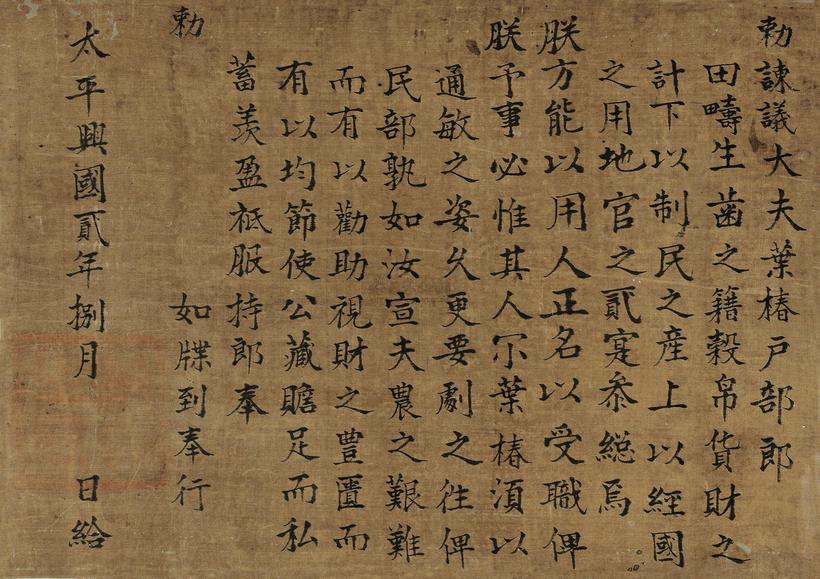 勅諫議大夫葉椿戶部郎
田疇生齒之籍穀帛貨財之
計下以制民之產上以經國
之用地官之貳寔叅緫焉
朕方能以用人正名以受職俾
朕予事必惟其人尔葉椿湏以
通敏之姿久更要劇之徃俾
民部孰如汝宣夫農之艱難
而有以勸助視財之豊匱而
有以均節使公藏贍足而私
蓄羨盈祗服持郎奉
勅
如牒到奉行
太平興國貳年捌月 日給